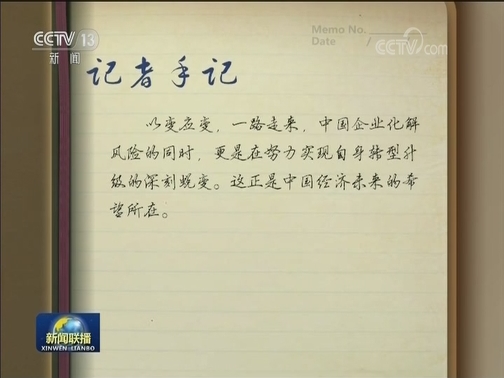 CCTV 13
新闻
Memo No.
Date /
CCTV.com
记者手记
以变应变，一路走来，中国企业化解
风险的同时，更是在努力实现自身转型升
级的深刻蜕变。这正是中国经济未来的希
望所在。
新闻联播
XINWEN LIANBO